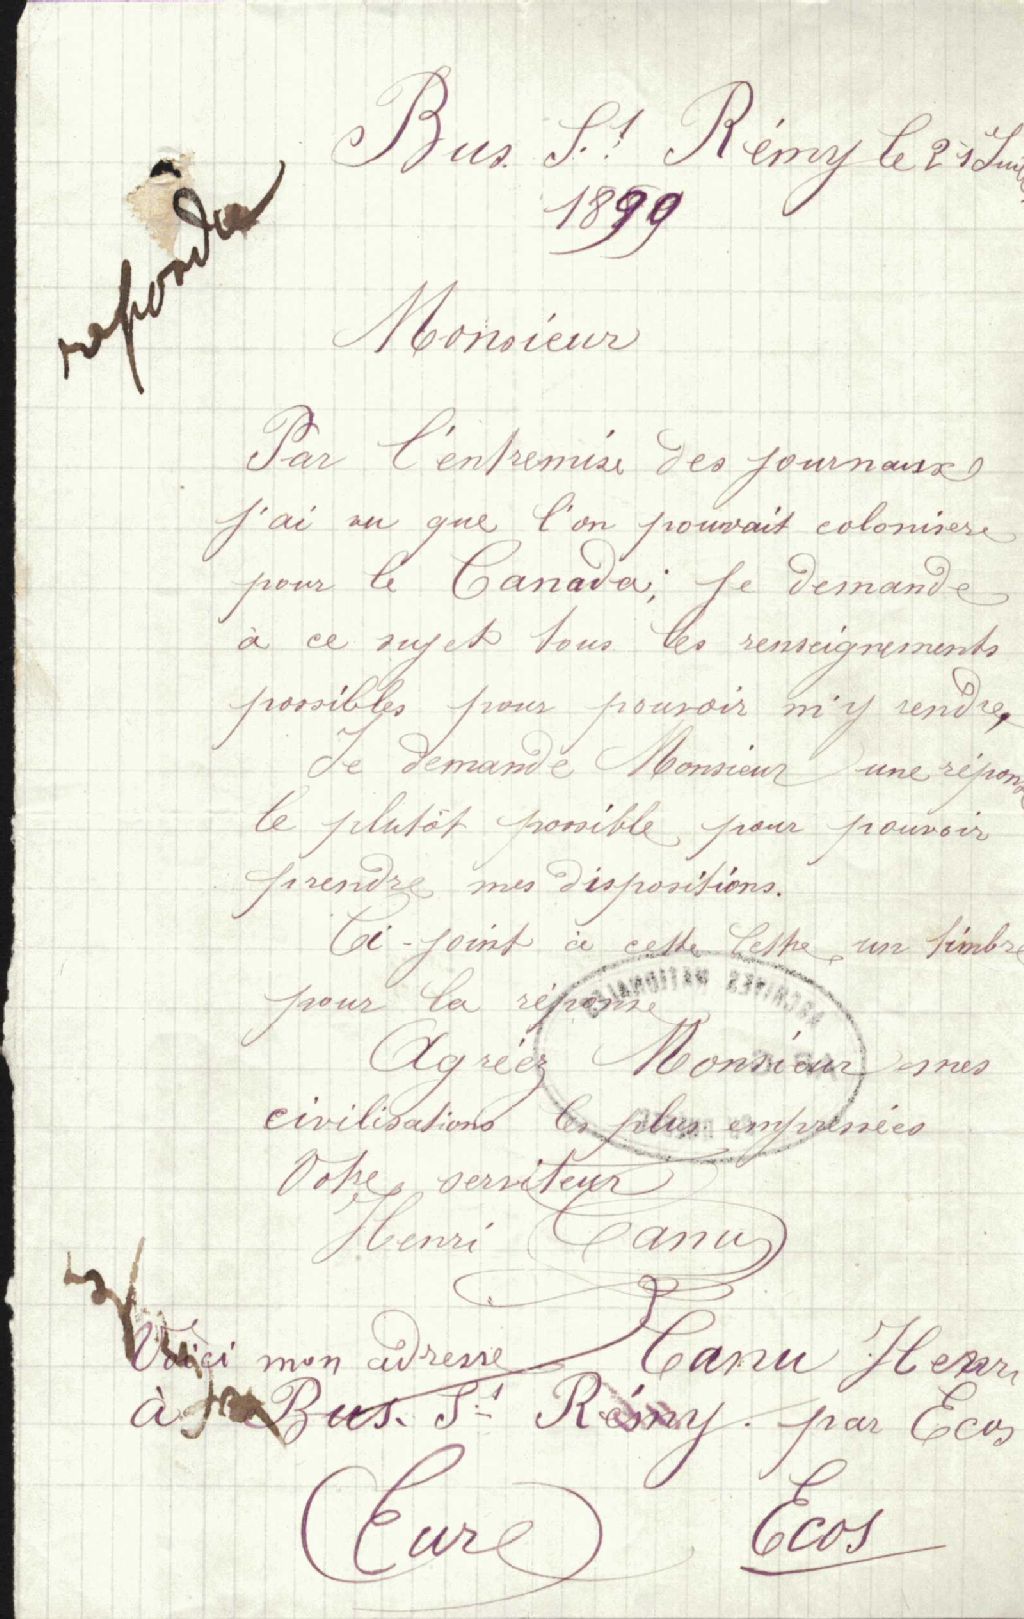 Bus. St Rémy le 21 Juill
1899
repondu
Monsieur
Par l'entremise des journaux
j'ai vu que l'on pouvait colonisere
pour le Canada; Je demande
à ce sujet tous les renseignements
possibles pour pouvoir m'y rendre,
Je demande Monsieur une réponse
le plutôt possible pour pouvoir
prendre mes dispositions.
Ci-joint à cette lettre un timbre
pour la réponse
ARCHIVES NATIONALES
Agréez Monsieur mes
civilisations les plus empressées
Votre serviteur
Henri Canu
Voici mon adresse Canu Henri
à Bus. St Rémy. par Ecos
Eure Ecos